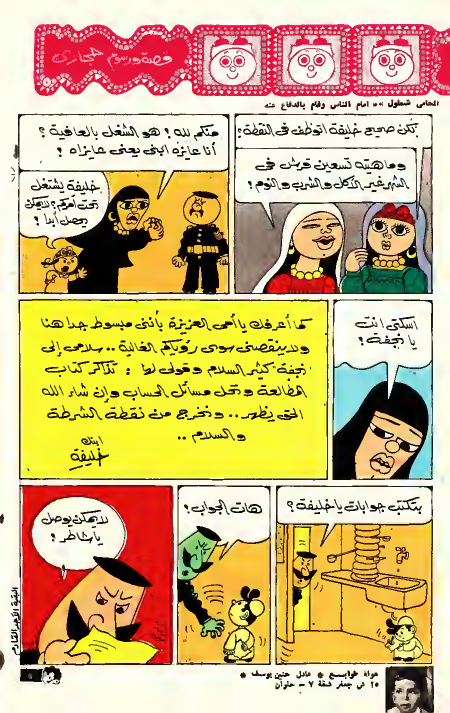 قصة ورسوم حجازى
المحامى شملول »» امام الناس وقام بالدفاع عنه
بكن صحيح خليفة اتوظف فى النقطة؟
وماهيته تسعين قرش فى
الشهر غير الأكل والشرب والنوم؟
منكم لله! هو الشغل بالعافية؟
أنا عايزه ابنى يعنى عايزاه!
خليفة يشتغل
تحت أمركم؟ لايمكن
يحصل أبدا!
اسكتى انت
يا نجفة!
كما أعرفك يا أمى العزيزة بأننى مبسوط جدا هنا
ولا ينقصنى سوى رؤياكم الغالية.. سلامى إلى
نجفة كثير السلام وقولى لها: تذاكر كتاب
المطالعة وتحل مسائل الحساب وإن شاء الله
الحق يظهر.. ونخرج من نقطة الشرطة
والسلام..
ابنك
خليفة
بتكتب جوابات يا خليفة؟
هات الجواب!
لا يمكن يوصل
يا شاطر!
البقية الأحد القادم
هواة طوابع * عادل حنين يوسف *
٢٥ ش جعفر شقة ٧ - حلوان